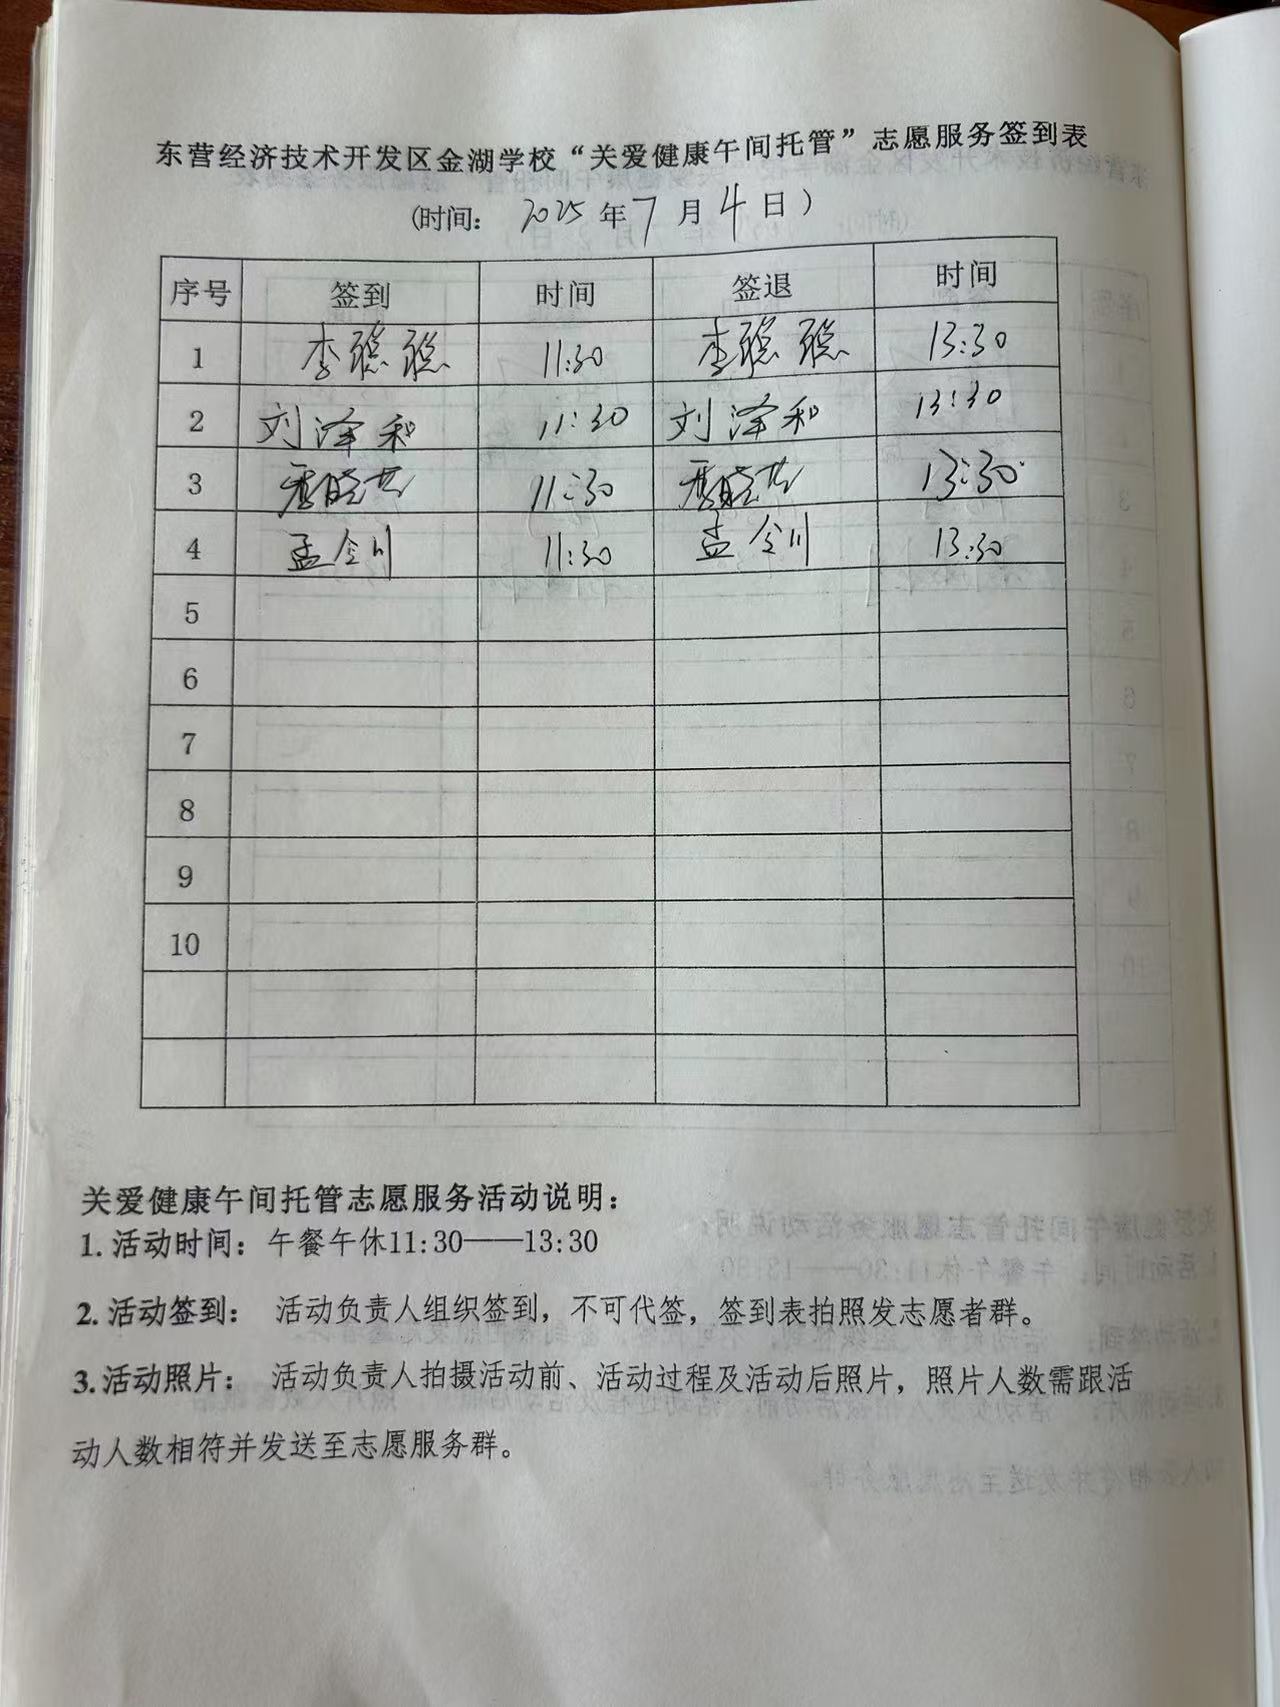 东营经济技术开发区金湖学校“关爱健康午间托管”志愿服务签到表
(时间: 2025年7月4日)
序号 签到 时间 签退 时间
1 李聪聪 11:30 李聪聪 13:30
2 刘泽和 11:30 刘泽和 13:30
3 11:30 13:30
4 孟令川 11:30 孟令川 13:30
5
6
7
8
9
10
关爱健康午间托管志愿服务活动说明:
1.活动时间: 午餐午休11:30——13:30
2.活动签到: 活动负责人组织签到,不可代签,签到表拍照发志愿者群。
3.活动照片: 活动负责人拍摄活动前、活动过程及活动后照片,照片人数需跟活
动人数相符并发送至志愿服务群。